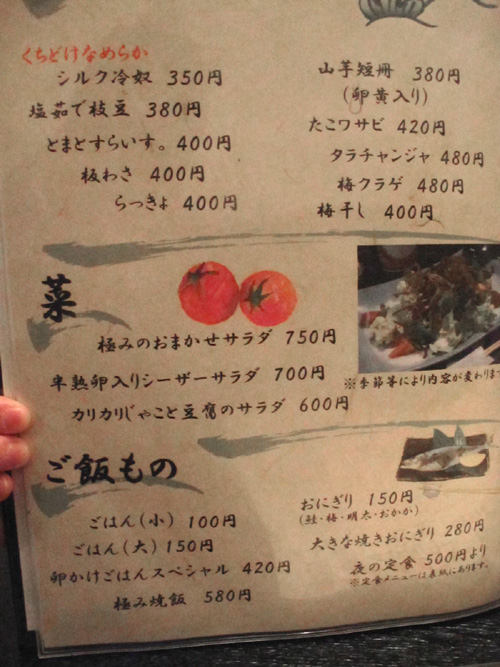 くちどけなめらか
シルク冷奴 350円
塩茹で枝豆 380円
とまとすらいす。400円
板わさ 400円
らっきょ 400円
山芋短冊 380円
(卵黄入り)
たこワサビ 420円
タラチャンジャ 480円
梅クラゲ 480円
梅干し 400円
菜
極みのおまかせサラダ 750円
半熟卵入りシーザーサラダ 700円
カリカリじゃこと豆腐のサラダ 600円
※季節等により内容が変わりま
ご飯もの
ごはん(小) 100円
ごはん(大) 150円
卵かけごはんスペシャル 420円
極み焼飯 580円
おにぎり 150円
(鮭・梅・明太・おかか)
大きな焼きおにぎり 280円
夜の定食 500円より
※定食メニューは表紙にあります。